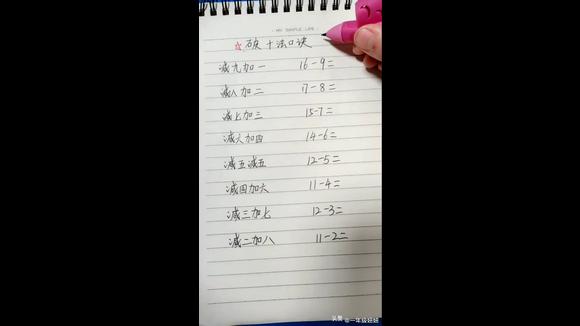 MY SIMPLE LIFE
☆ 破十法口诀
减九加一 16-9=
减八加二 17-8=
减七加三 15-7=
减六加四 14-6=
减五减五 12-5=
减四加六 11-4=
减三加七 12-3=
减二加八 11-2=
头条 @一年级